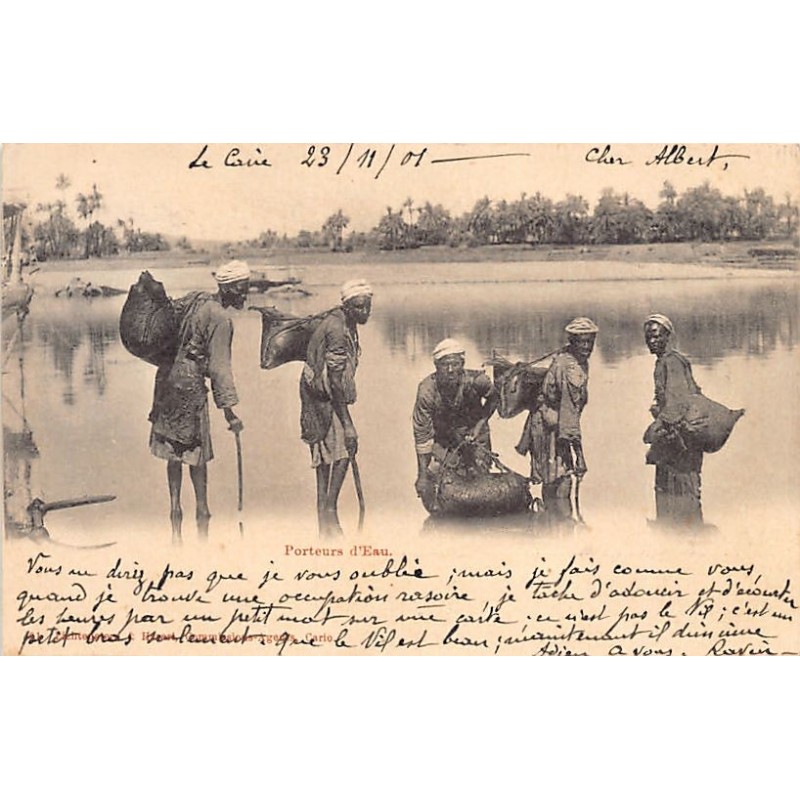 Le Caire 23/11/01 — Cher Albert,
Porteurs d'Eau.
Vous me direz pas que je vous oublie; mais je fais comme vous
quand je trouve une occupation rasoire, je tâche d'adoucir et d'écourter
les heures par un petit mot sur une carte; ce n'est pas le Nil; c'est un
petit bras seulement. que le Nil est beau; maintenant il diminue
Adieu à vous.
Cairo